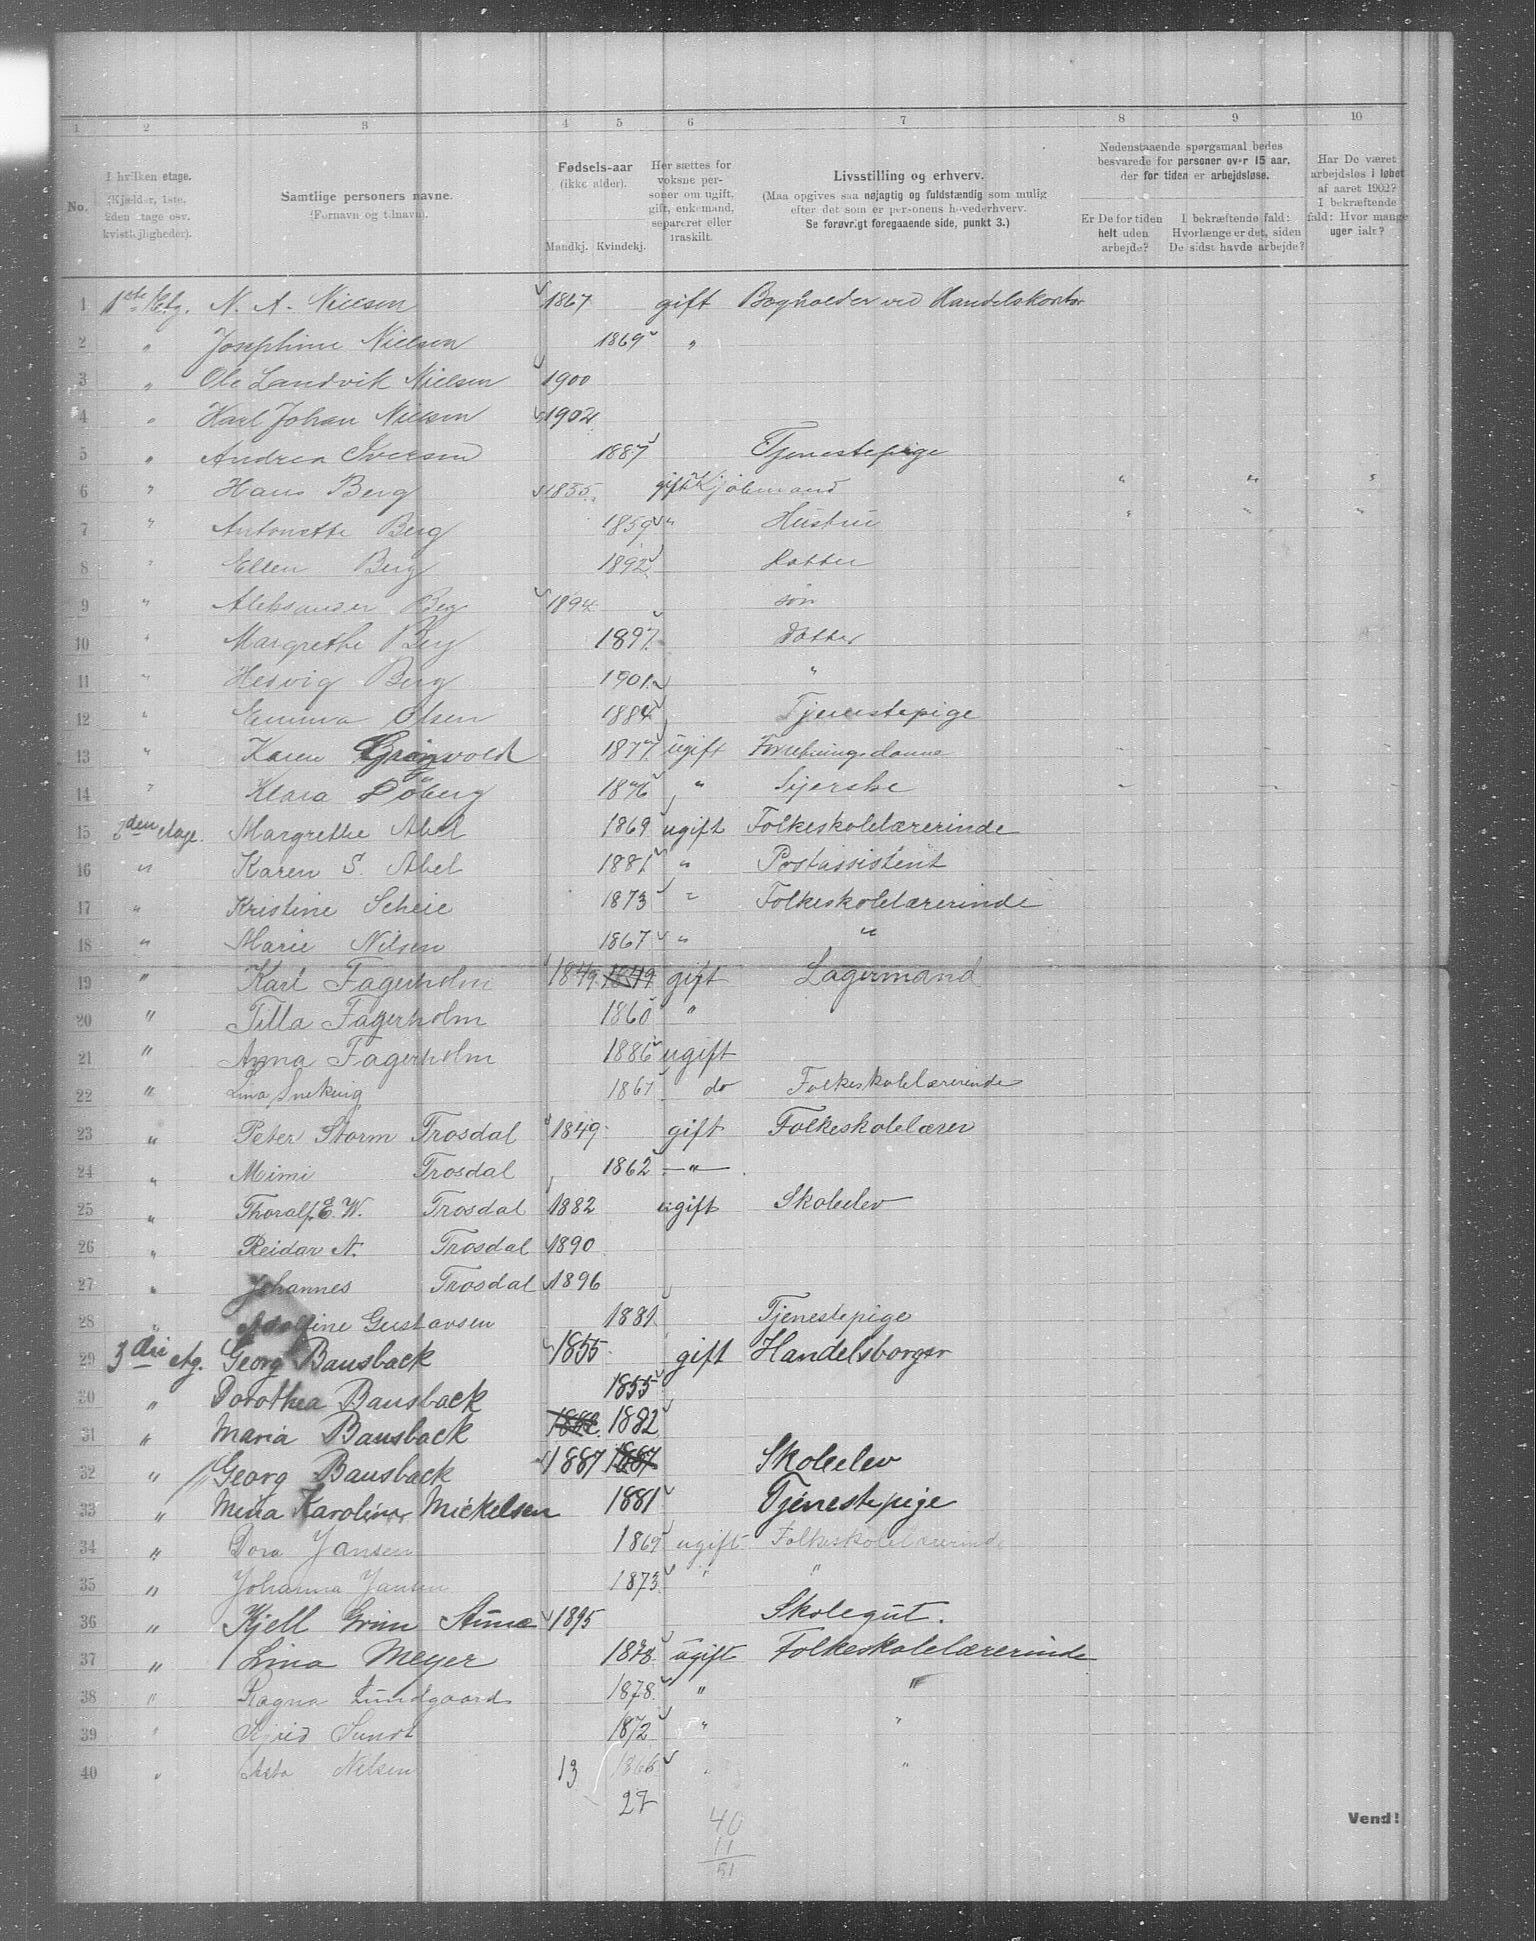 1 2 3 4 5 6 7 8 9 10
No.
I hvilken etage.
(Kjælder, 1ste, 2den etage osv. kvistlejligheder).
Samtlige personers navne.
(Fornavn og tilnavn).
Fødsels-aar
(ikke alder).
Mandkj. Kvindekj.
Her sættes for voksne personer om ugift, gift, enkemand, separeret eller fraskilt.
Livsstilling og erhverv.
(Maa opgives saa nøjagtig og fuldstændig som mulig efter det som er personens hovederhverv. Se forøvrigt foregaaende side, punkt 3.)
Nedenstaaende spørgsmaal bedes besvarede for personer over 15 aar, der for tiden er arbejdsløse.
Er De for tiden helt uden arbejde?
I bekræftende fald: Hvorlænge er det, siden De sidst havde arbejde?
Har De været arbejdsløs i løbet af aaret 1902? I bekræftende fald: Hvor mange uger ialt?
1 1ste Etg. N. A. Nielsen 1867 gift Bogholder ved Handelskontor
2 " Josephine Nielsen 1869 "
3 " Ole Landvik Nielsen 1900
4 " Karl Johan Nielsen 1902
5 " Andrea Iversen 1887 Tjenestepige
6 " Hans Berg 1855 gift " " "
7 " Antonette Berg 1859 " Hustru " " "
8 " Ellen Berg 1892 Datter
9 " Aleksander Berg 1894 søn
10 " Margrethe Berg 1897 Datter
11 " Hedvig Berg 1901 "
12 " Emma Olsen 1884 Tjenestepige
13 " Karen Grönvold 1877 ugift Forretningsdame " " "
14 " Klara Söberg 1876 " Syerske " " "
15 2den etage. Margrethe Abel 1869 ugift Folkeskolelærerinde
16 " Karen S. Abel 1881 " Postassistent
17 " Kristine Scheie 1873 " Folkeskolelærerinde
18 " Marie Nilsen 1867 " "
19 " Karl Fagerholm 1849 1849 gift Lagermand
20 " Tilla Fagerholm 1860 "
21 " Anna Fagerholm 1886 ugift
22 " Lina 1867 do Folkeskolelærerinde
23 " Peter Storm Trosdal 1849 gift Folkeskolelærer
24 " Mimi Trosdal 1862 — " —
25 " Thoralf E. W. Trosdal 1882 ugift Skoleelev
26 " Reidar A. Trosdal 1890
27 " Johannes Trosdal 1896
28 " Adolfine Gustavsen 1881 Tjenestepige
29 3die etg. Georg Bausback 1855 gift Handelsborger
30 " Dorothea Bausback 1855
31 " Maria Bausback 1882 1882
32 " Georg Bausback 1887 1887 Skoleelev
33 " Mina Karoline Mickelsen 1881 Tjenestepige
34 " Dora Jansen 1869 ugift Folkeskolelærerinde
35 " Johanna Jansen 1873 " "
36 " Kjell Grim Aune 1895 Skolegut.
37 " Lina Meyer 1878 ugift Folkeskolelærerinde
38 " Ragna Lundgaard 1878 " "
39 " Sundt 1872 " "
40 " Asta Nilsen 1866 " "
13 27
40
11
51
Vend!